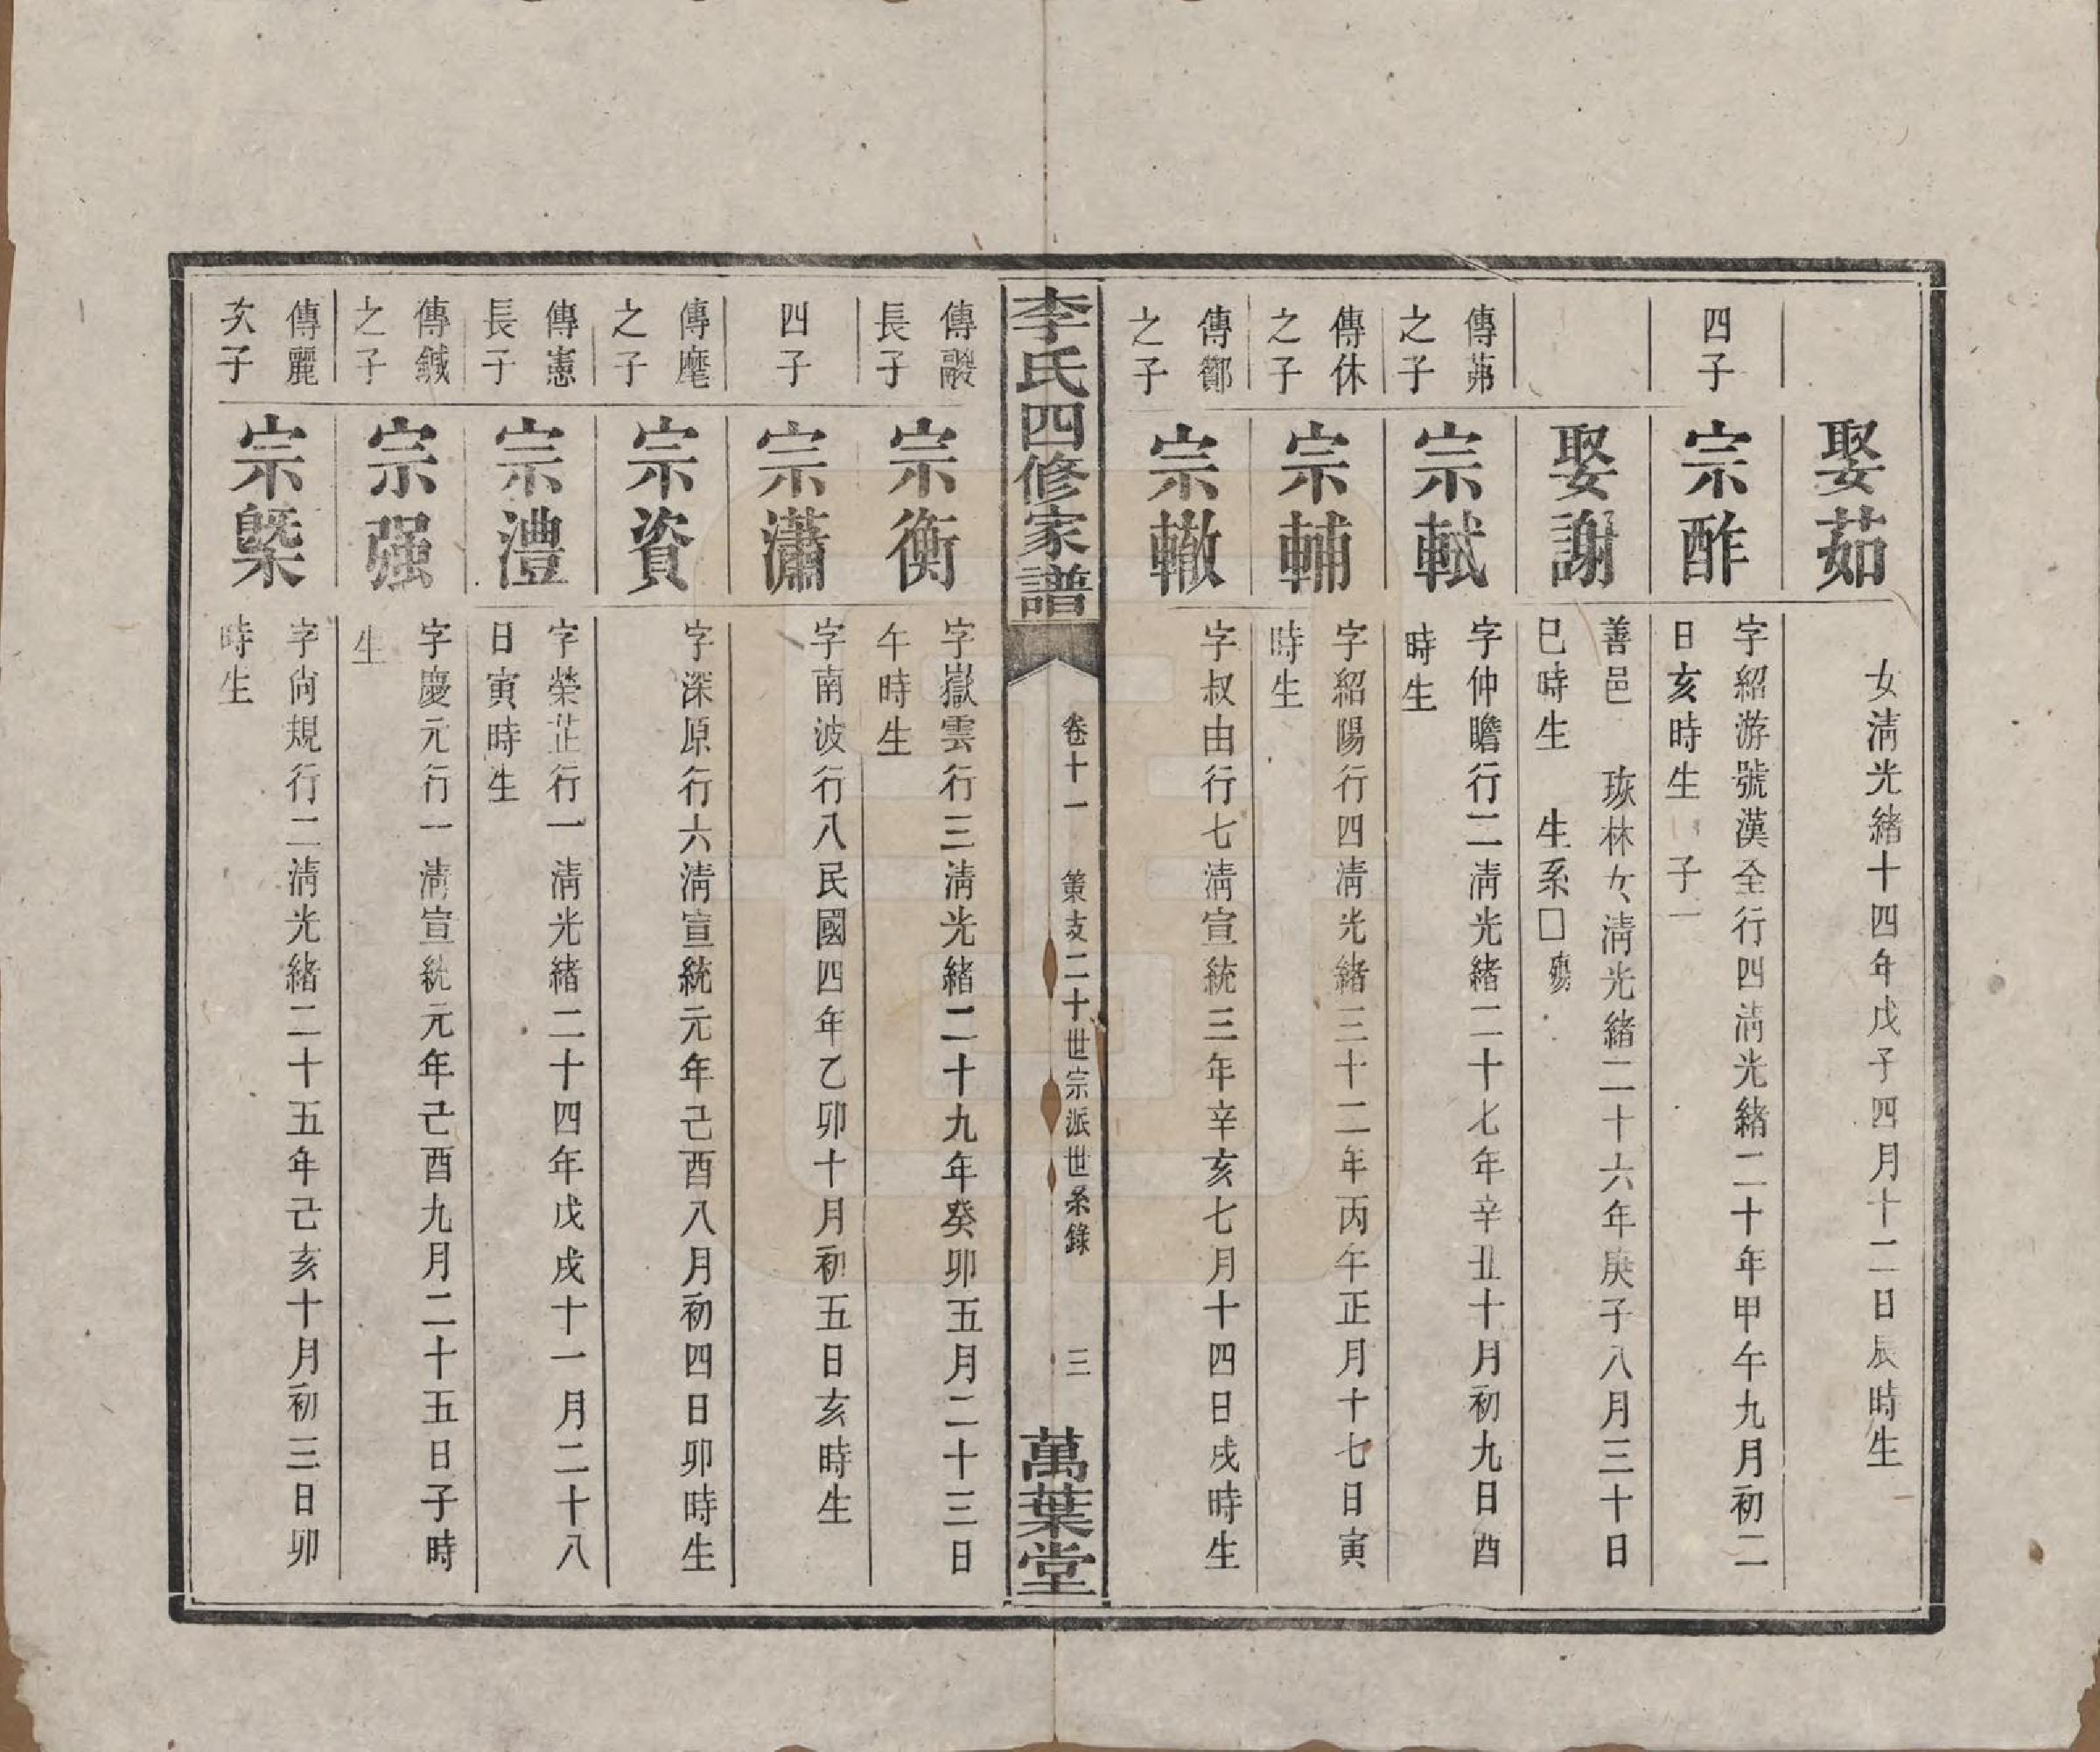 娶茹
女淸光緖十四年戊子四月十二日辰時生
四子
宗酢
字紹游號漢全行四淸光緖二十年甲午九月初二
日亥時生 子一
娶謝
善邑 珴林女淸光緖二十六年庚子八月三十日
巳時生 生系□殤
傳茀
之子
宗軾
字仲瞻行二淸光緖二十七年辛丑十月初九日酉
時生
傳休
之子
宗輔
字紹陽行四淸光緖三十二年丙午正月十七日寅
時生
傳鄒
之子
宗轍
字叔由行七淸宣統三年辛亥七月十四日戌時生
李氏四修家譜
卷十一 策支二十世宗派世系錄 三
萬葉堂
傳
長子
宗衡
字嶽雲行三淸光緖二十九年癸卯五月二十三日
午時生
四子
宗瀟
字南波行八民國四年乙卯十月初五日亥時生
傳麾
之子
宗資
字深原行六淸宣統元年己酉八月初四日卯時生
傳憲
長子
宗澧
字榮芷行一淸光緖二十四年戊戌十一月二十八
日寅時生
傳鍼
之子
宗强
字慶元行一淸宣統元年己酉九月二十五日子時
生
傳麗
次子
宗槩
字尙規行二淸光緖二十五年己亥十月初三日卯
時生